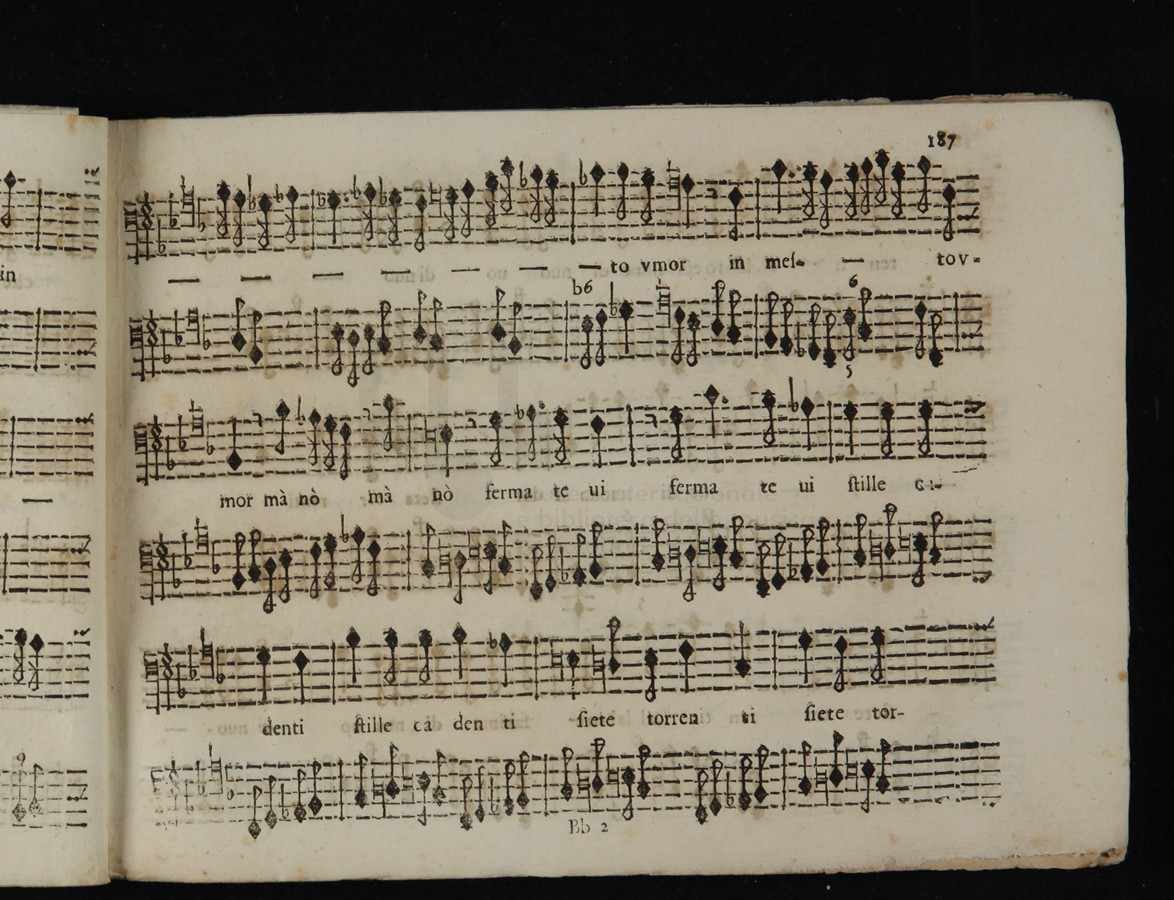 187
in
to vmor in mes- tov-
b6
6
5
mor mà nò mà nò ferma te ui ferma te ui ſtille
denti ſtille ca den ti ſiete torren ti ſiete tor-
Bb 2